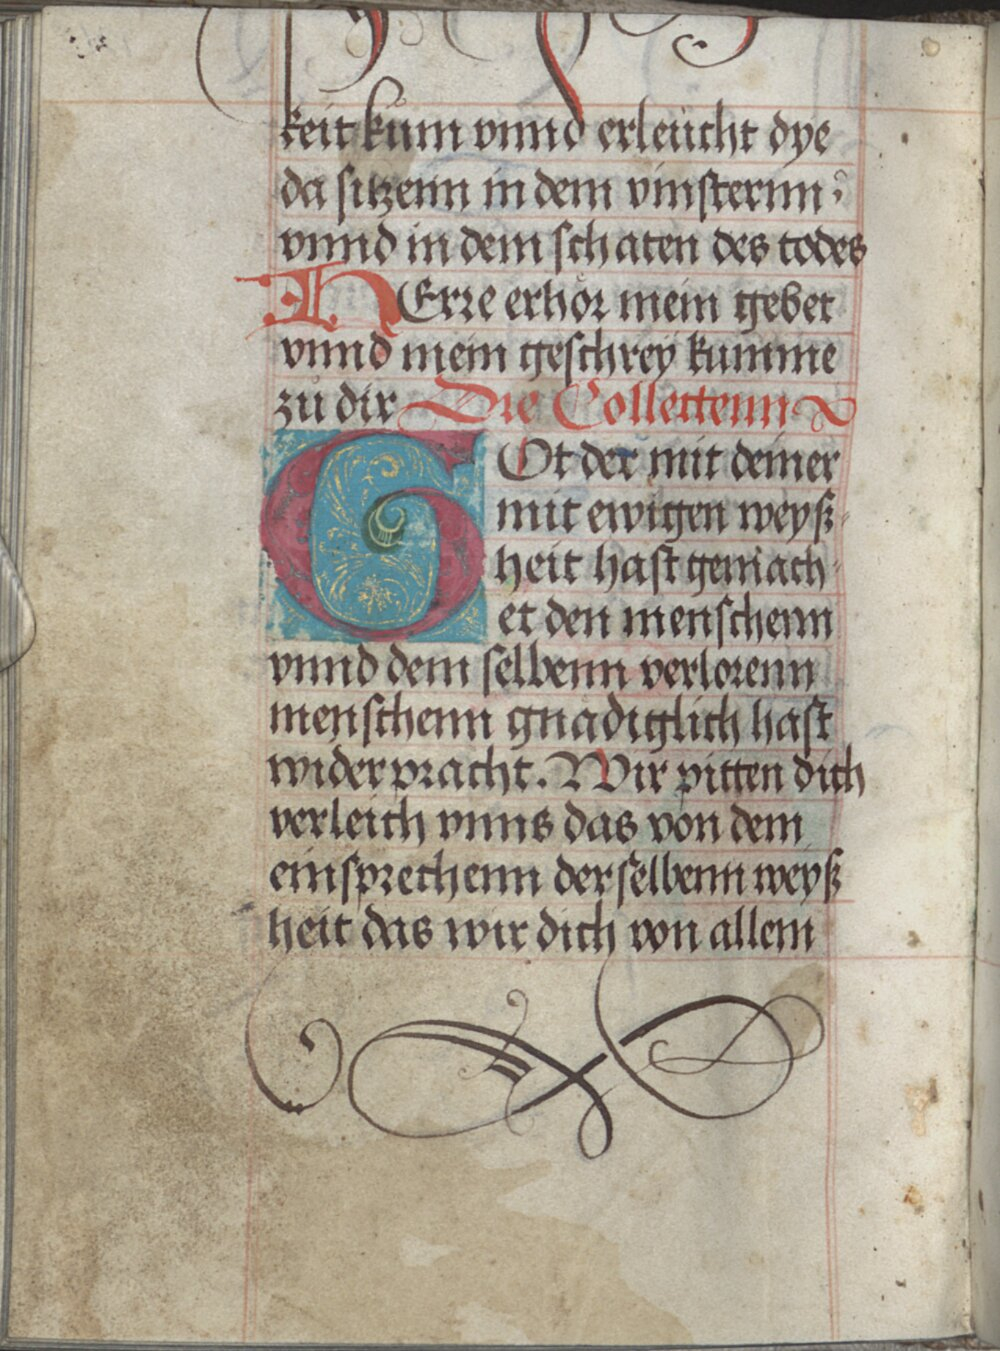 keit kum vnnd erleücht dye
da sitzenn in dem vinsternn
vnnd in dem schaten des todes
HErre erhör mein gebet
vnnd mein geschrey kumme
zů dir Die Collecttenn
GOt der mit deiner
mit ewigen weyß
heit hast gemach
et den menschenn
vnnd dem selbenn verlorenn
menschenn gnädiglich hast
widerpracht. Wir pitten dich
verleich vnns das von dem
einsprechenn derselbenn weyß
heit das wir dich von allem